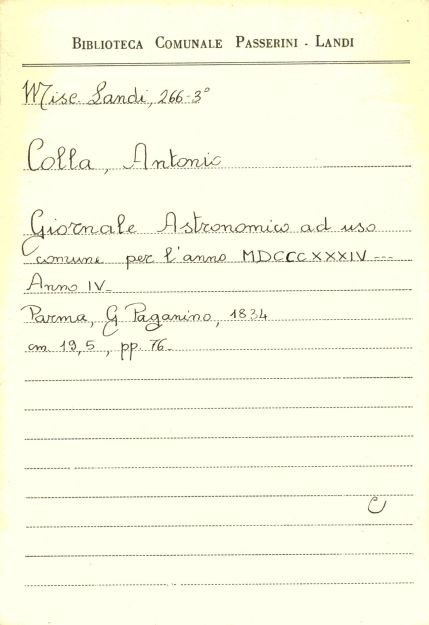 BIBLIOTECA COMUNALE PASSERINI - LANDI
Misc. Landi, 266-3°
Colla, Antonio
Giornale Astronomico ad uso
comune per l'anno MDCCCXXXIV ---
Anno IV-
Parma, G Paganino, 1834
cm. 19,5, pp. 76-
C